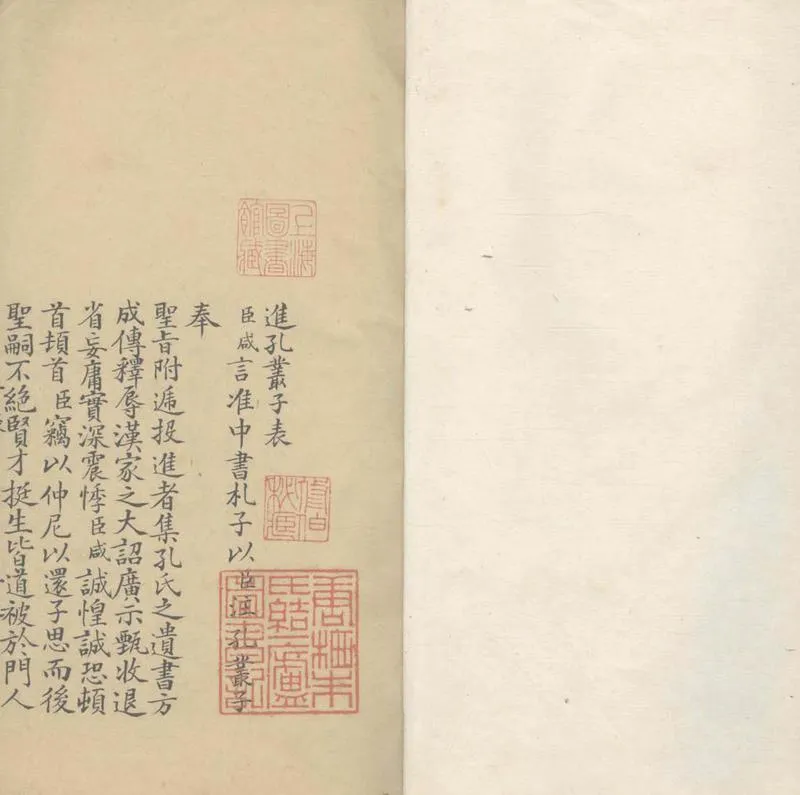 進孔叢子表
臣咸言准中書札子以臣注孔叢子
奉
聖旨附遞投進者集孔氏之遺書方
成傳釋辱漢家之大詔廣示甄收退
省妄庸實深震悸臣咸誠惶誠恐頓
首頓首臣竊以仲尼以還子思而後
聖嗣不絶賢才挺生皆道被於門人
上海圖書館藏